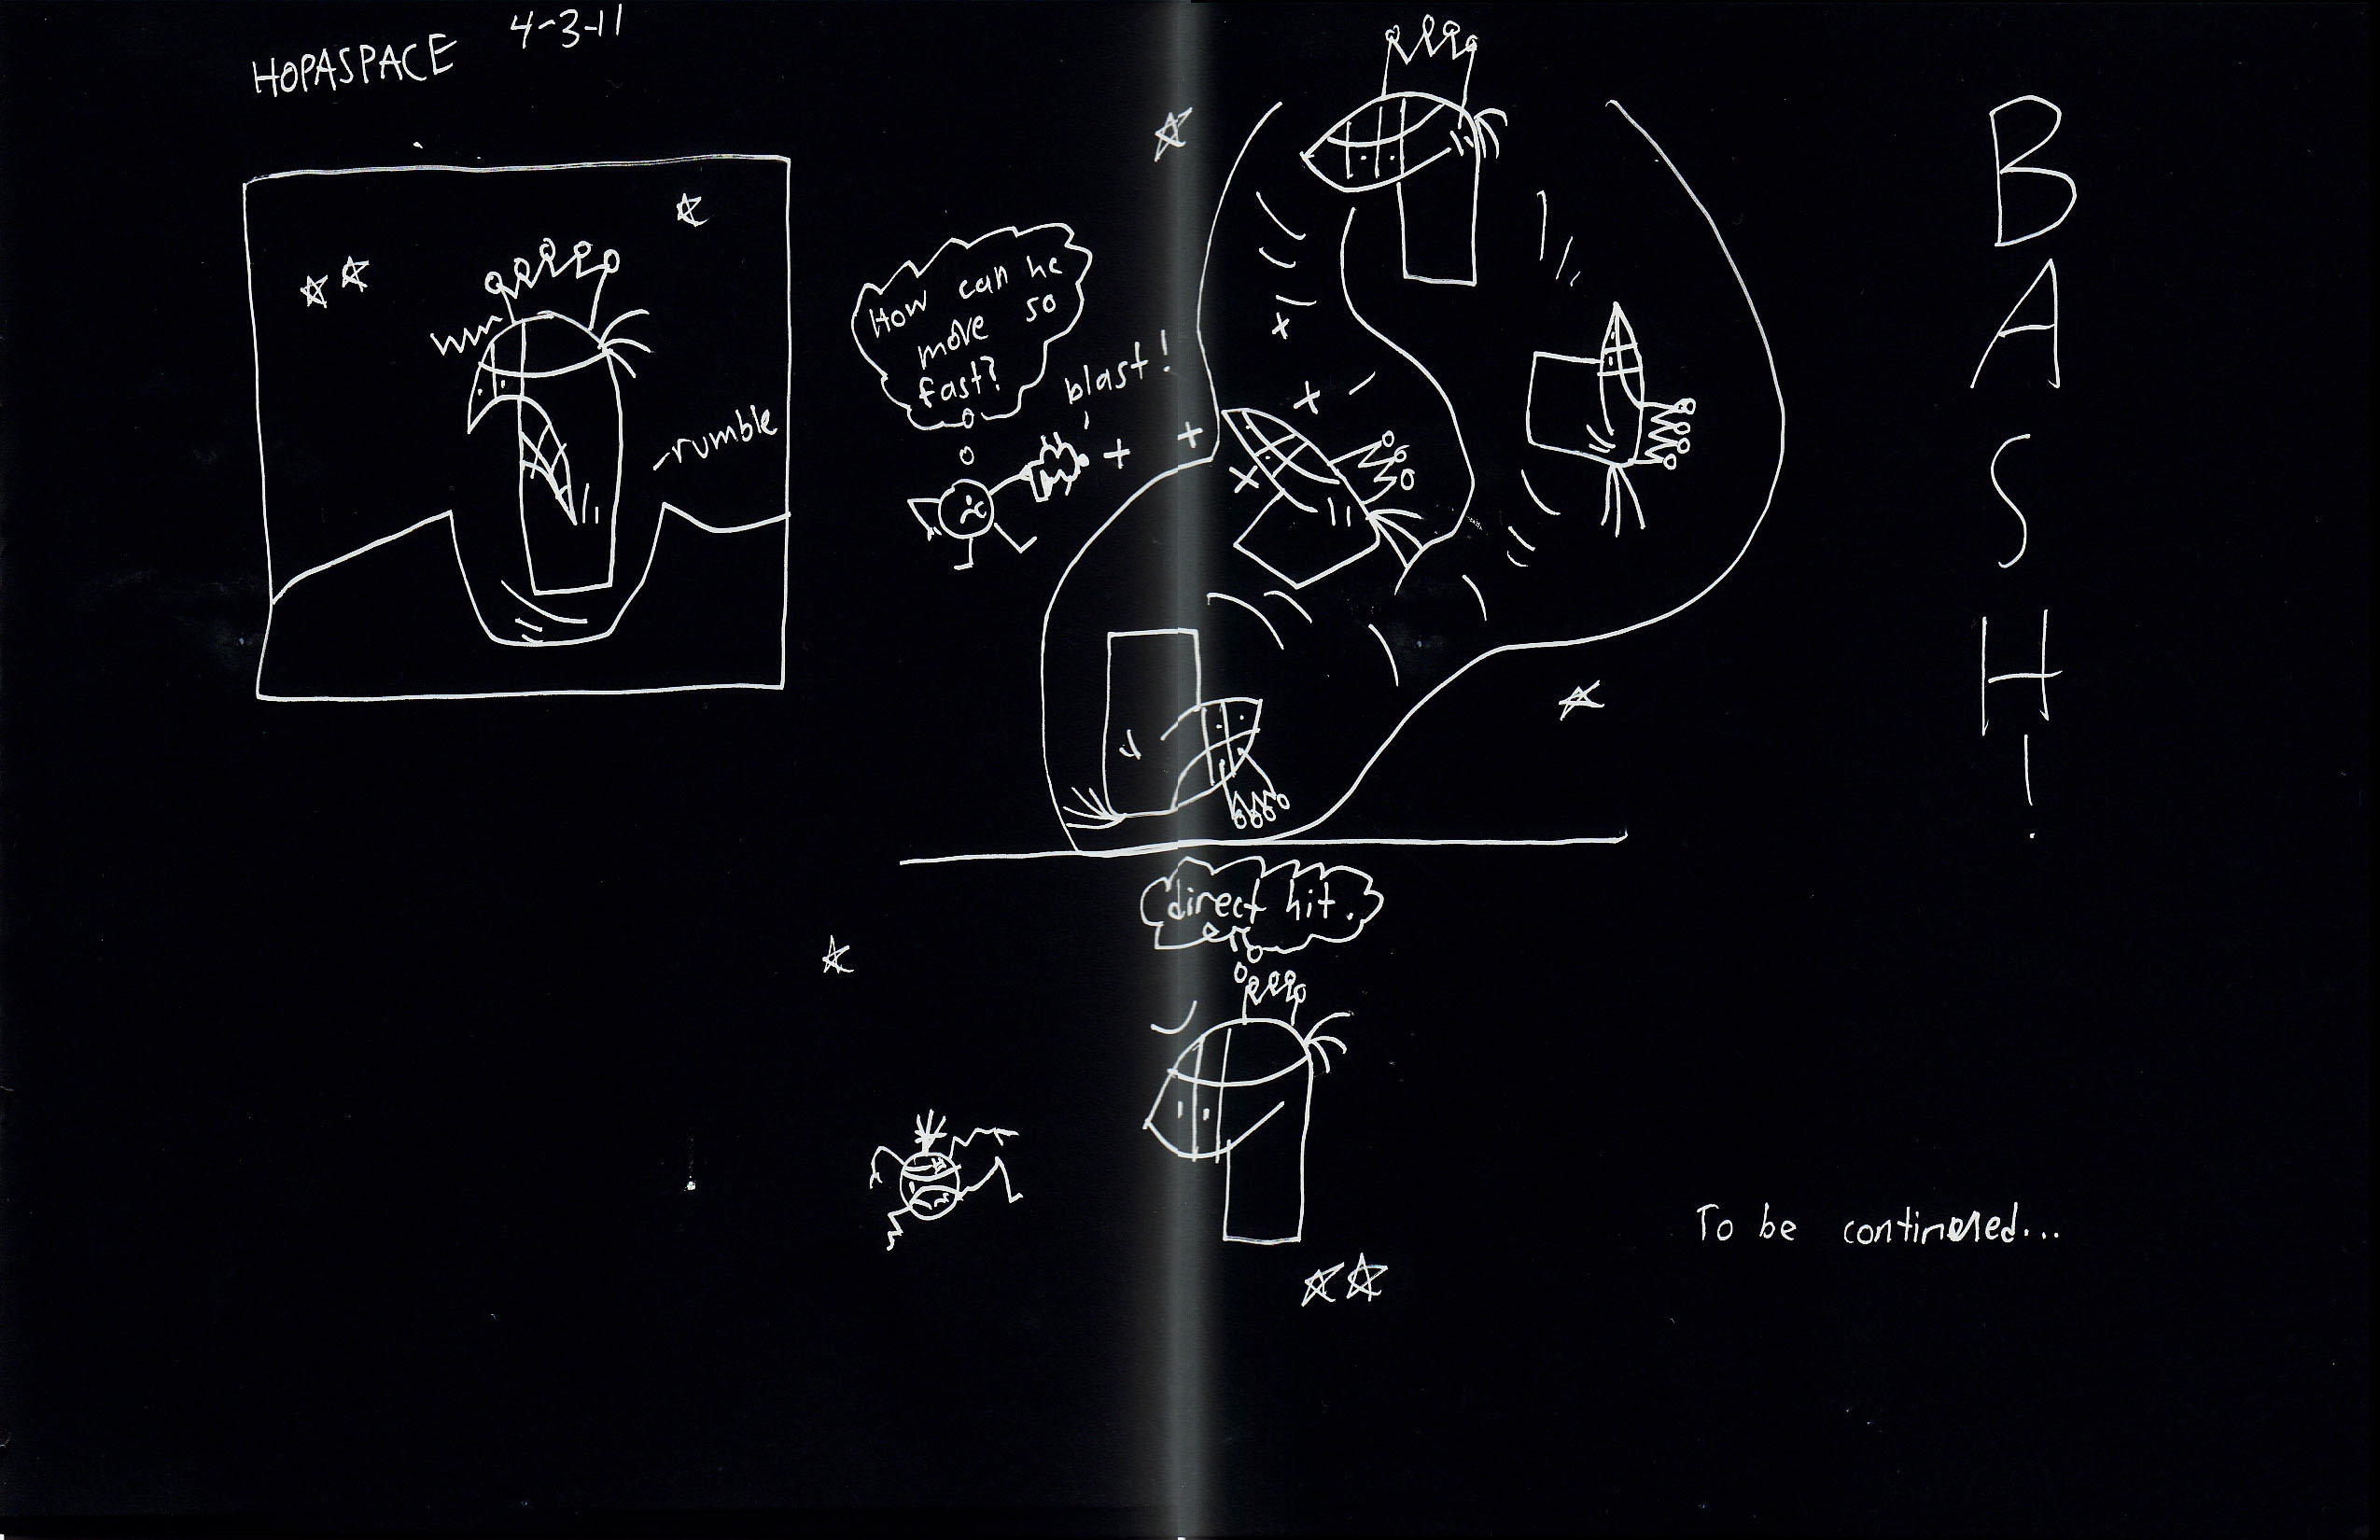 HOPASPACE 4-3-11
-rumble
How can he
move so
fast?
blast!
BASH!
direct hit.
To be continued...